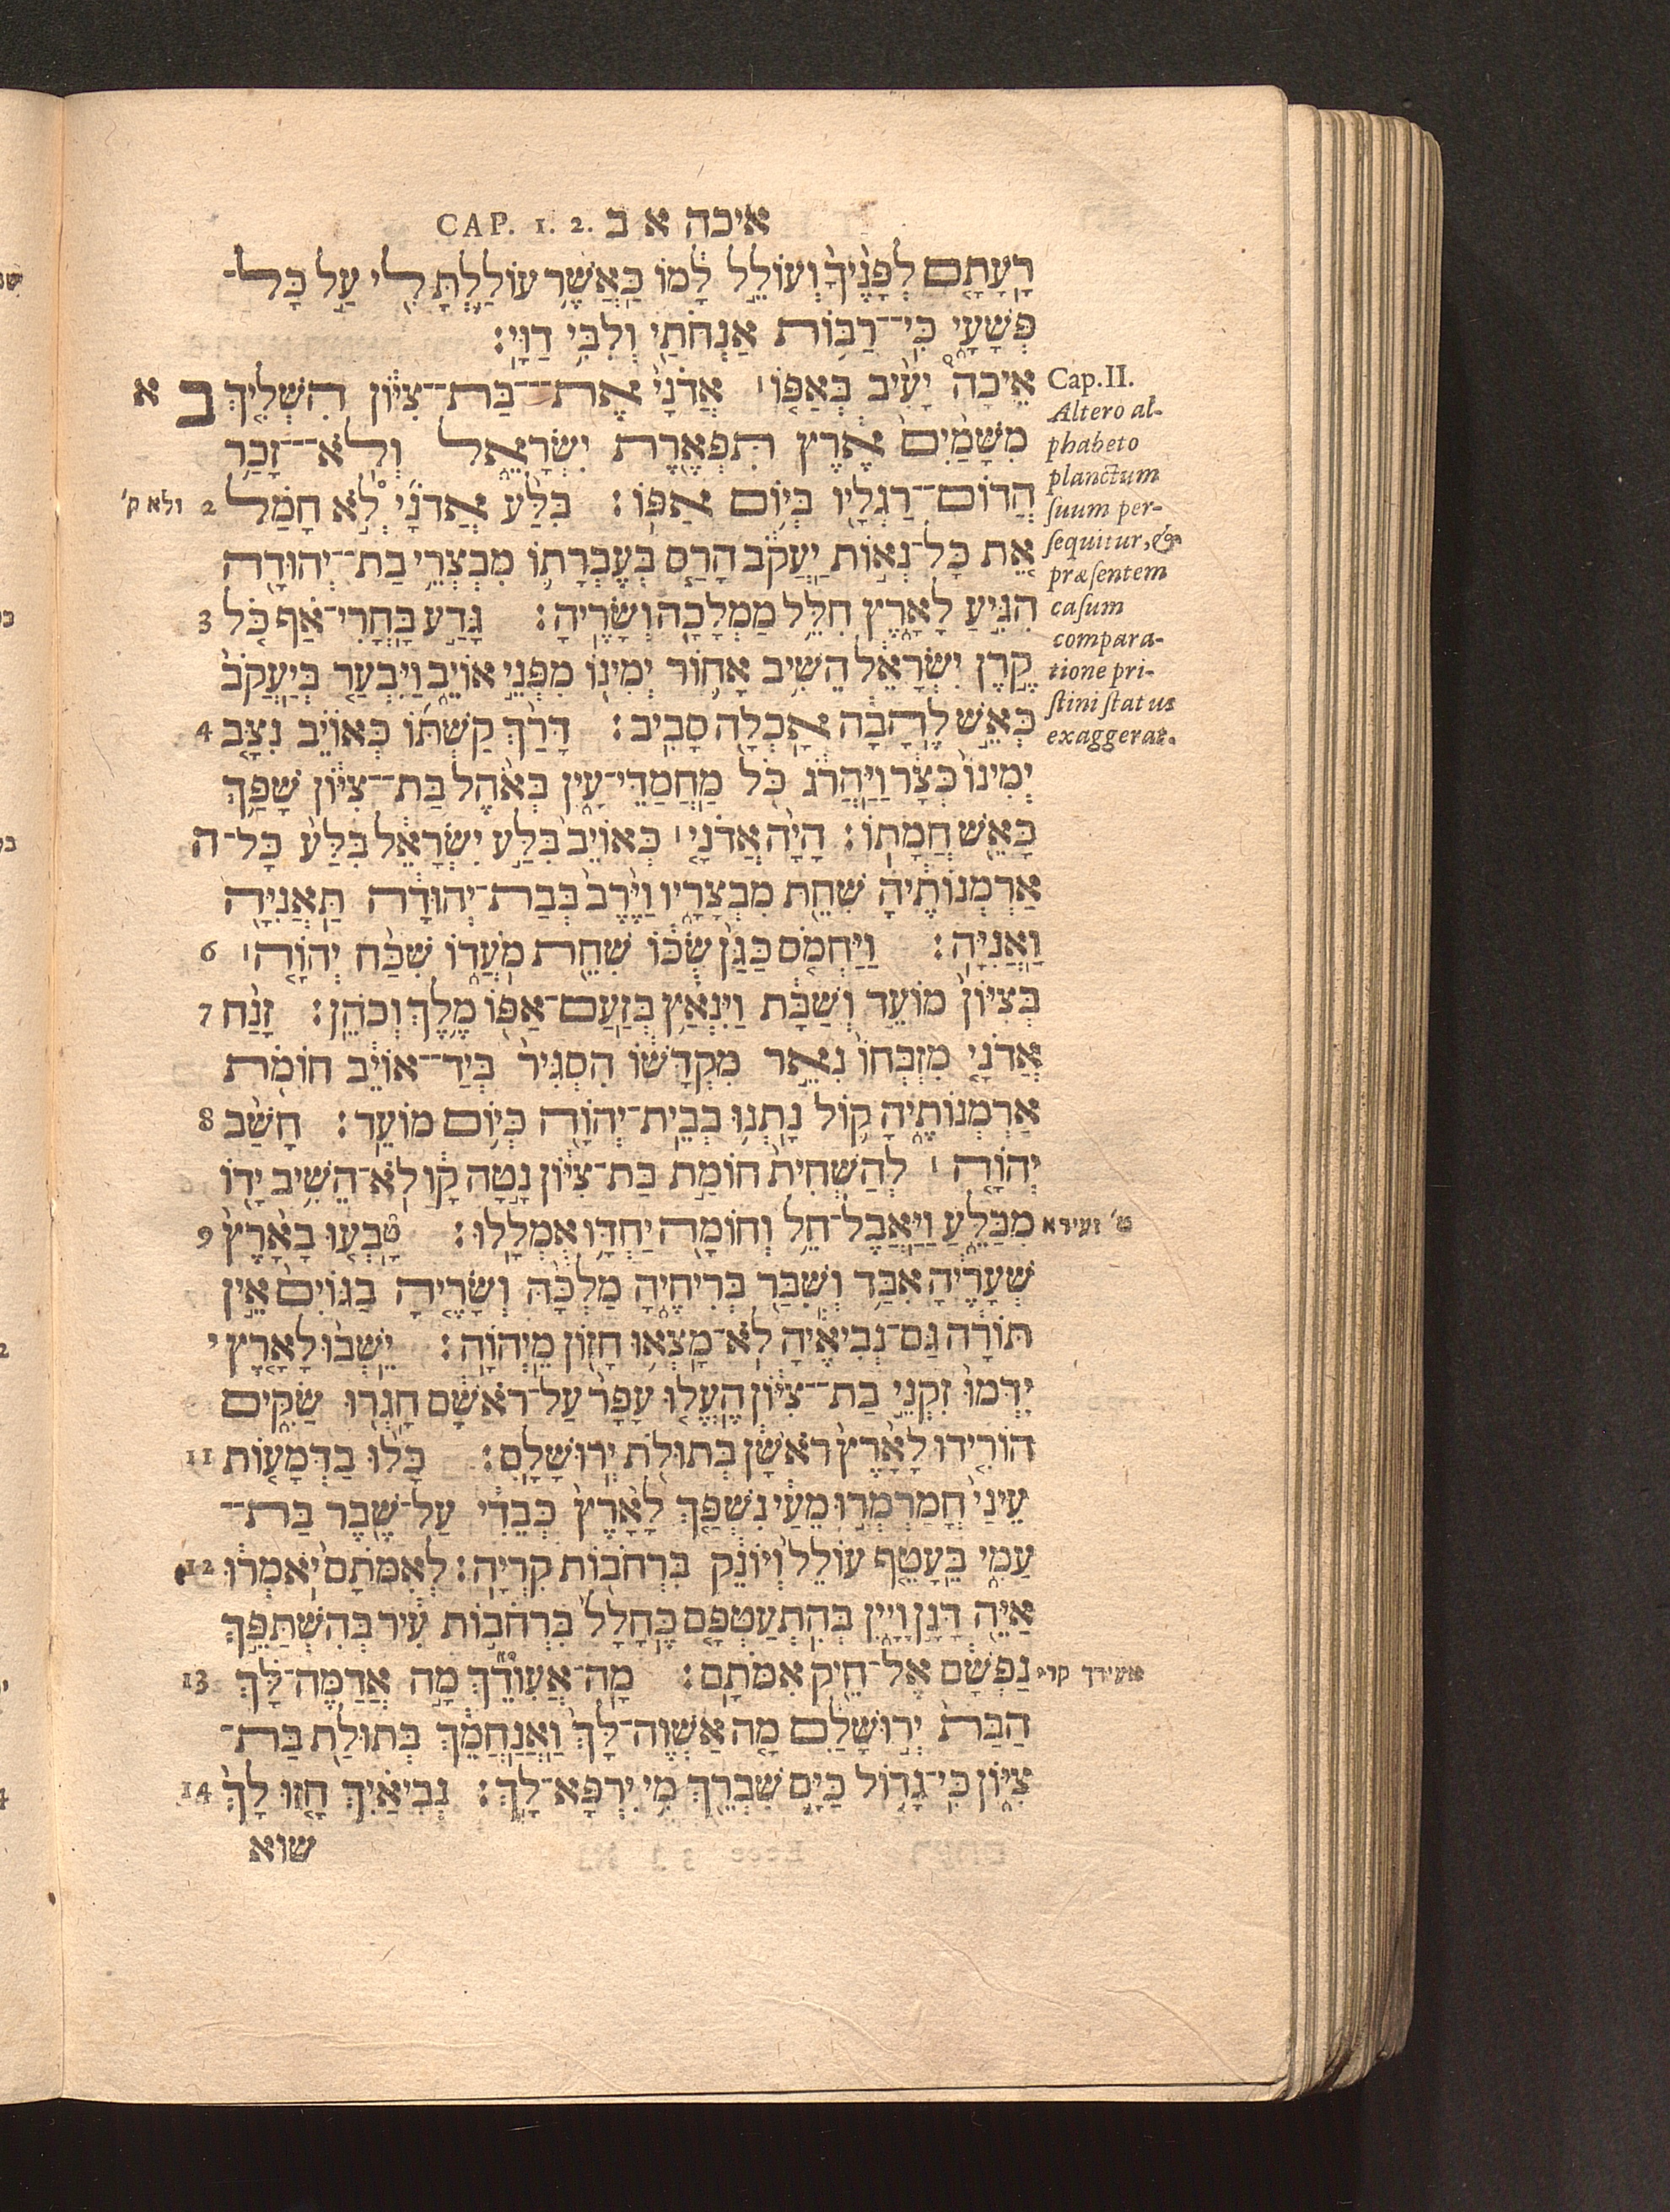 איכה א ב CAP. 1. 2.
רָעָתָם לְפָנֶיךָ וְעוֹלֵל לָמוֹ כַּאֲשֶׁר עוֹלַלְתָּ לִי עַל כָּל־
פְּשָׁעָי כִּי־רַבּוֹת אַנְחֹתַי וְלִבִּי דַוָּי׃
אֵיכָה יָעִיב בְּאַפּוֹ׀ אֲדֹנָי אֶת־בַּת־צִיּוֹן הִשְׁלִיךְ ב א
מִשָּׁמַיִם אֶרֶץ תִּפְאֶרֶת יִשְׂרָאֵל וְלֹא־זָכַר
הֲדוֹם־רַגְלָיו בְּיוֹם אַפּוֹ׃ בִּלַּע אֲדֹנָי לֹא חָמַל 2 ולא ק'
אֵת כָּל־נְאוֹת יַעֲקֹב הָרַס בְּעֶבְרָתוֹ מִבְצְרֵי בַת־יְהוּדָה
הִגִּיעַ לָאָרֶץ חִלֵּל מַמְלָכָה וְשָׂרֶיהָ׃ גָּדַע בָּחֳרִי־אַף כֹּל 3
קֶרֶן יִשְׂרָאֵל הֵשִׁיב אָחוֹר יְמִינוֹ מִפְּנֵי אוֹיֵב וַיִּבְעַר בְּיַעֲקֹב
כְּאֵשׁ לֶהָבָה אָכְלָה סָבִיב׃ דָּרַךְ קַשְׁתּוֹ כְּאוֹיֵב נִצָּב 4
יְמִינוֹ כְּצָר וַיַּהֲרֹג כֹּל מַחֲמַדֵּי־עָיִן בְּאֹהֶל בַּת־צִיּוֹן שָׁפַךְ
כָּאֵשׁ חֲמָתוֹ׃ הָיָה אֲדֹנָי׀ כְּאוֹיֵב בִּלַּע יִשְׂרָאֵל בִּלַּע כָּל־ ה
אַרְמְנוֹתֶיהָ שִׁחֵת מִבְצָרָיו וַיֶּרֶב בְּבַת־יְהוּדָה תַּאֲנִיָּה
וַאֲנִיָּה׃ וַיַּחְמֹס כַּגַּן שֻׂכּוֹ שִׁחֵת מֹעֲדוֹ שִׁכַּח יְהוָֹה׀ 6
בְּצִיּוֹן מוֹעֵד וְשַׁבָּת וַיִּנְאַץ בְּזַעַם־אַפּוֹ מֶלֶךְ וְכֹהֵן׃ זָנַח 7
אֲדֹנָי מִזְבְּחוֹ נִאֵר מִקְדָּשׁוֹ הִסְגִּיר בְּיַד־אוֹיֵב חוֹמֹת
אַרְמְנוֹתֶיהָ קוֹל נָתְנוּ בְּבֵית־יְהוָֹה כְּיוֹם מוֹעֵד׃ חָשַׁב 8
יְהוָֹה׀ לְהַשְׁחִית חוֹמַת בַּת־צִיּוֹן נָטָה קָו לֹא־הֵשִׁיב יָדוֹ
מִבַּלֵּעַ וַיַּאֲבֶל־חֵל וְחוֹמָה יַחְדָּו אֻמְלָלוּ׃ טָבְעוּ בָאָרֶץ 9 ט' זעירא
שְׁעָרֶיהָ אִבַּד וְשִׁבַּר בְּרִיחֶיהָ מַלְכָּהּ וְשָׂרֶיהָ בַגּוֹיִם אֵין
תּוֹרָה גַּם־נְבִיאֶיהָ לֹא־מָצְאוּ חָזוֹן מֵיְהוָֹה׃ יֵשְׁבוּ לָאָרֶץ י
יִדְּמוּ זִקְנֵי בַת־צִיּוֹן הֶעֱלוּ עָפָר עַל־רֹאשָׁם חָגְרוּ שַׂקִּים
הוֹרִידוּ לָאָרֶץ רֹאשָׁן בְּתוּלֹת יְרוּשָׁלִָם׃ כָּלוּ בַדְּמָעוֹת 11
עֵינַי חֳמַרְמְרוּ מֵעַי נִשְׁפַּךְ לָאָרֶץ כְּבֵדִי עַל־שֶׁבֶר בַּת־
עַמִּי בֵּעָטֵף עוֹלֵל וְיוֹנֵק בִּרְחֹבוֹת קִרְיָה׃ לְאִמֹּתָם יֹאמְרוּ 12
אַיֵּה דָּגָן וָיָיִן בְּהִתְעַטְּפָם כֶּחָלָל בִּרְחֹבוֹת עִיר בְּהִשְׁתַּפֵּךְ
נַפְשָׁם אֶל־חֵיק אִמֹּתָם׃ מָה־אֲעוּדֵךְ מָה אֲדַמֶּה־לָּךְ 13 אעידך קרי
הַבַּת יְרוּשָׁלִַם מָה אַשְׁוֶה־לָּךְ וַאֲנַחֲמֵךְ בְּתוּלַת בַּת־
צִיּוֹן כִּי־גָדוֹל כַּיָּם שִׁבְרֵךְ מִי יִרְפָּא־לָךְ׃ נְבִיאַיִךְ חָזוּ לָךְ 14
שוא
Cap.II.
Altero al-
phabeto
planctum
suum per-
sequitur, &
præsentem
casum
compara-
tione pri-
stini status
exaggerat.